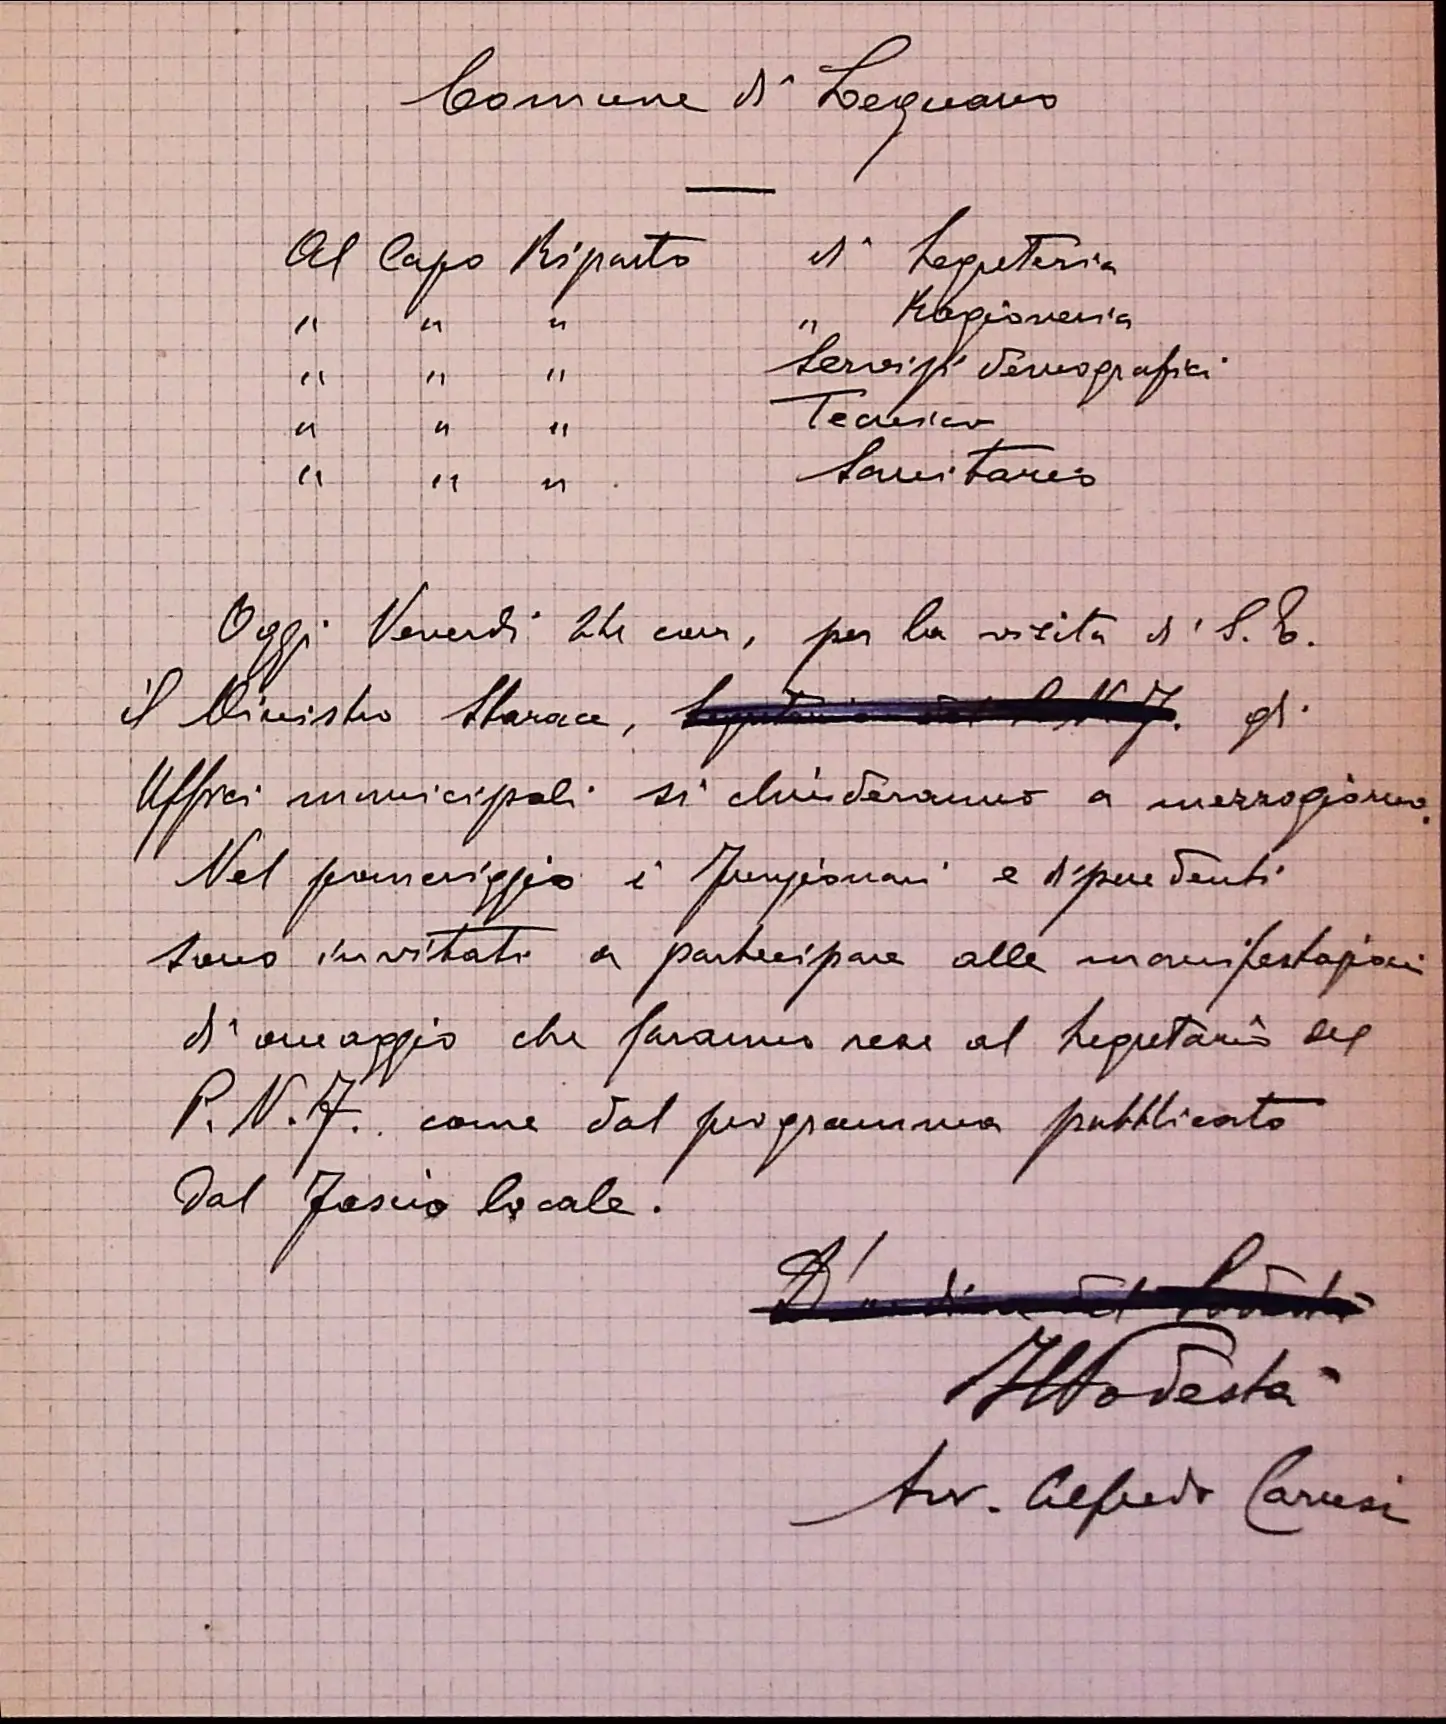 Comune di Legnano
Al Capo Riparto di Segreteria
" " " " Ragioneria
" " " Servizi demografici
" " " Tecnico
" " " Sanitario
Oggi Venerdi 24 corr, per la visita di S. E.
il Ministro Starace, Segretario del P. N. F. gli
Uffici municipali si chiuderanno a mezzogiorno.
Nel pomeriggio i Funzionari e dipendenti
sono invitati a partecipare alle manifestazioni
di omaggio che saranno rese al Segretario del
P. N. F. come dal programma pubblicato
dal Fascio locale.
D'ordine del Podestà
Il Podestà
Avv. Alfredo Carusi